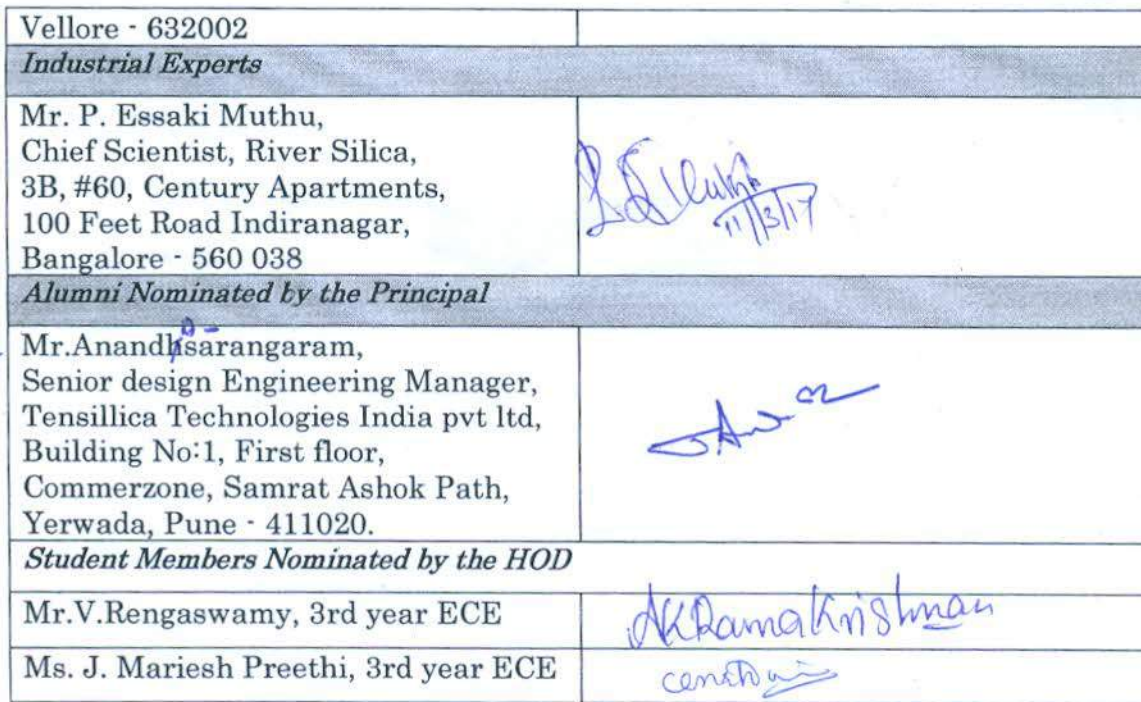 Vellore - 632002
Industrial Experts
Mr. P. Essaki Muthu,
Chief Scientist, River Silica,
3B, #60, Century Apartments,
100 Feet Road Indiranagar,
Bangalore - 560 038
11/3/17
Alumni Nominated by the Principal
Mr.Anandhsarangaram,
Senior design Engineering Manager,
Tensillica Technologies India pvt ltd,
Building No:1, First floor,
Commerzone, Samrat Ashok Path,
Yerwada, Pune - 411020.
Student Members Nominated by the HOD
Mr.V.Rengaswamy, 3rd year ECE
AKRamaKrishnan
Ms. J. Mariesh Preethi, 3rd year ECE